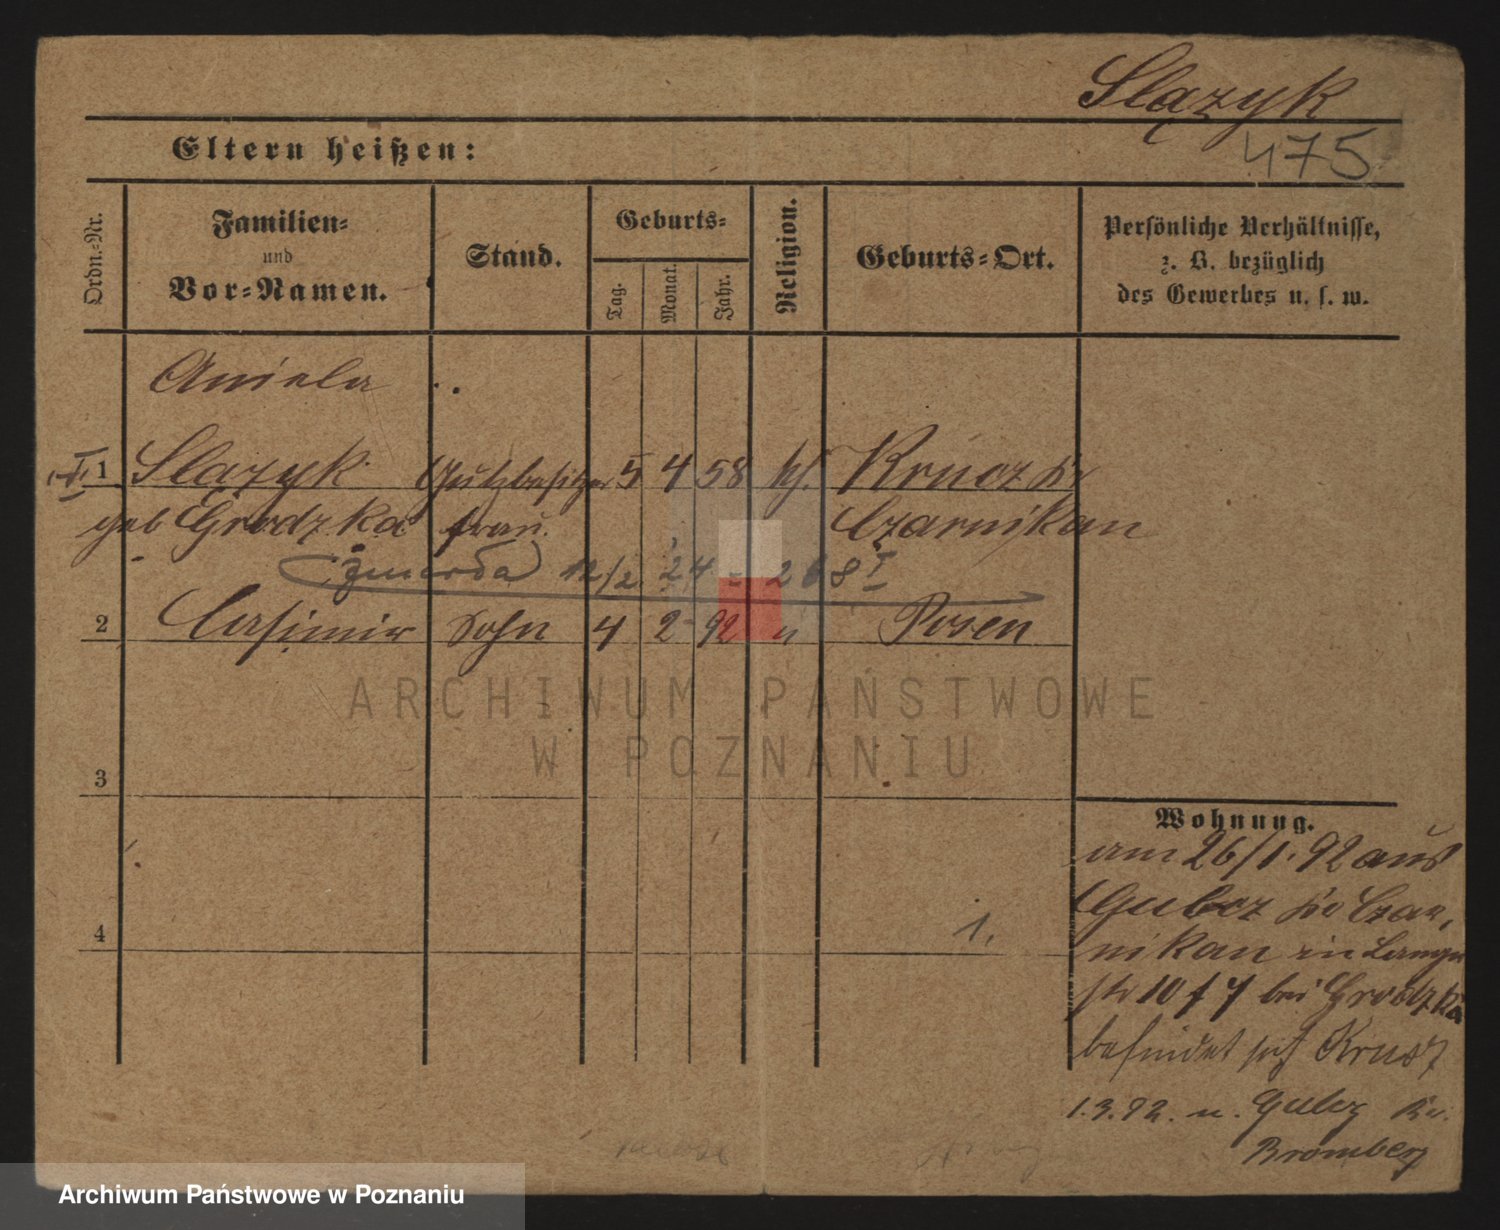 Ślązyk
475
Eltern heißen:
Ordn.-Nr.
Familien-
und
Vor-Namen.
Stand.
Geburts-
Tag.
Monat.
Jahr.
Religion.
Geburts-Ort.
Persönliche Verhältnisse,
z. B. bezüglich
des Gewerbes u. s. w.
Aniela
1 Slazyk Gutsbesitzer 5 4 58 kh. Krucz Kr
geb Grodzka frau. Czarnikau
zmarła 12/2 24 = 268
2 Casimir Sohn 4 2 92 " Posen
ARCHIWUM PAŃSTWOWE
W POZNANIU
3
Wohnung.
am 26/1. 92 aus
Gulcz Kr Czar-
nikau in Lange
str 10 f 7 bei Grodzka
4
1.
befindet sich Krucz
1.3.92. u. Gulcz Kr.
Bromberg
Archiwum Państwowe w Poznaniu